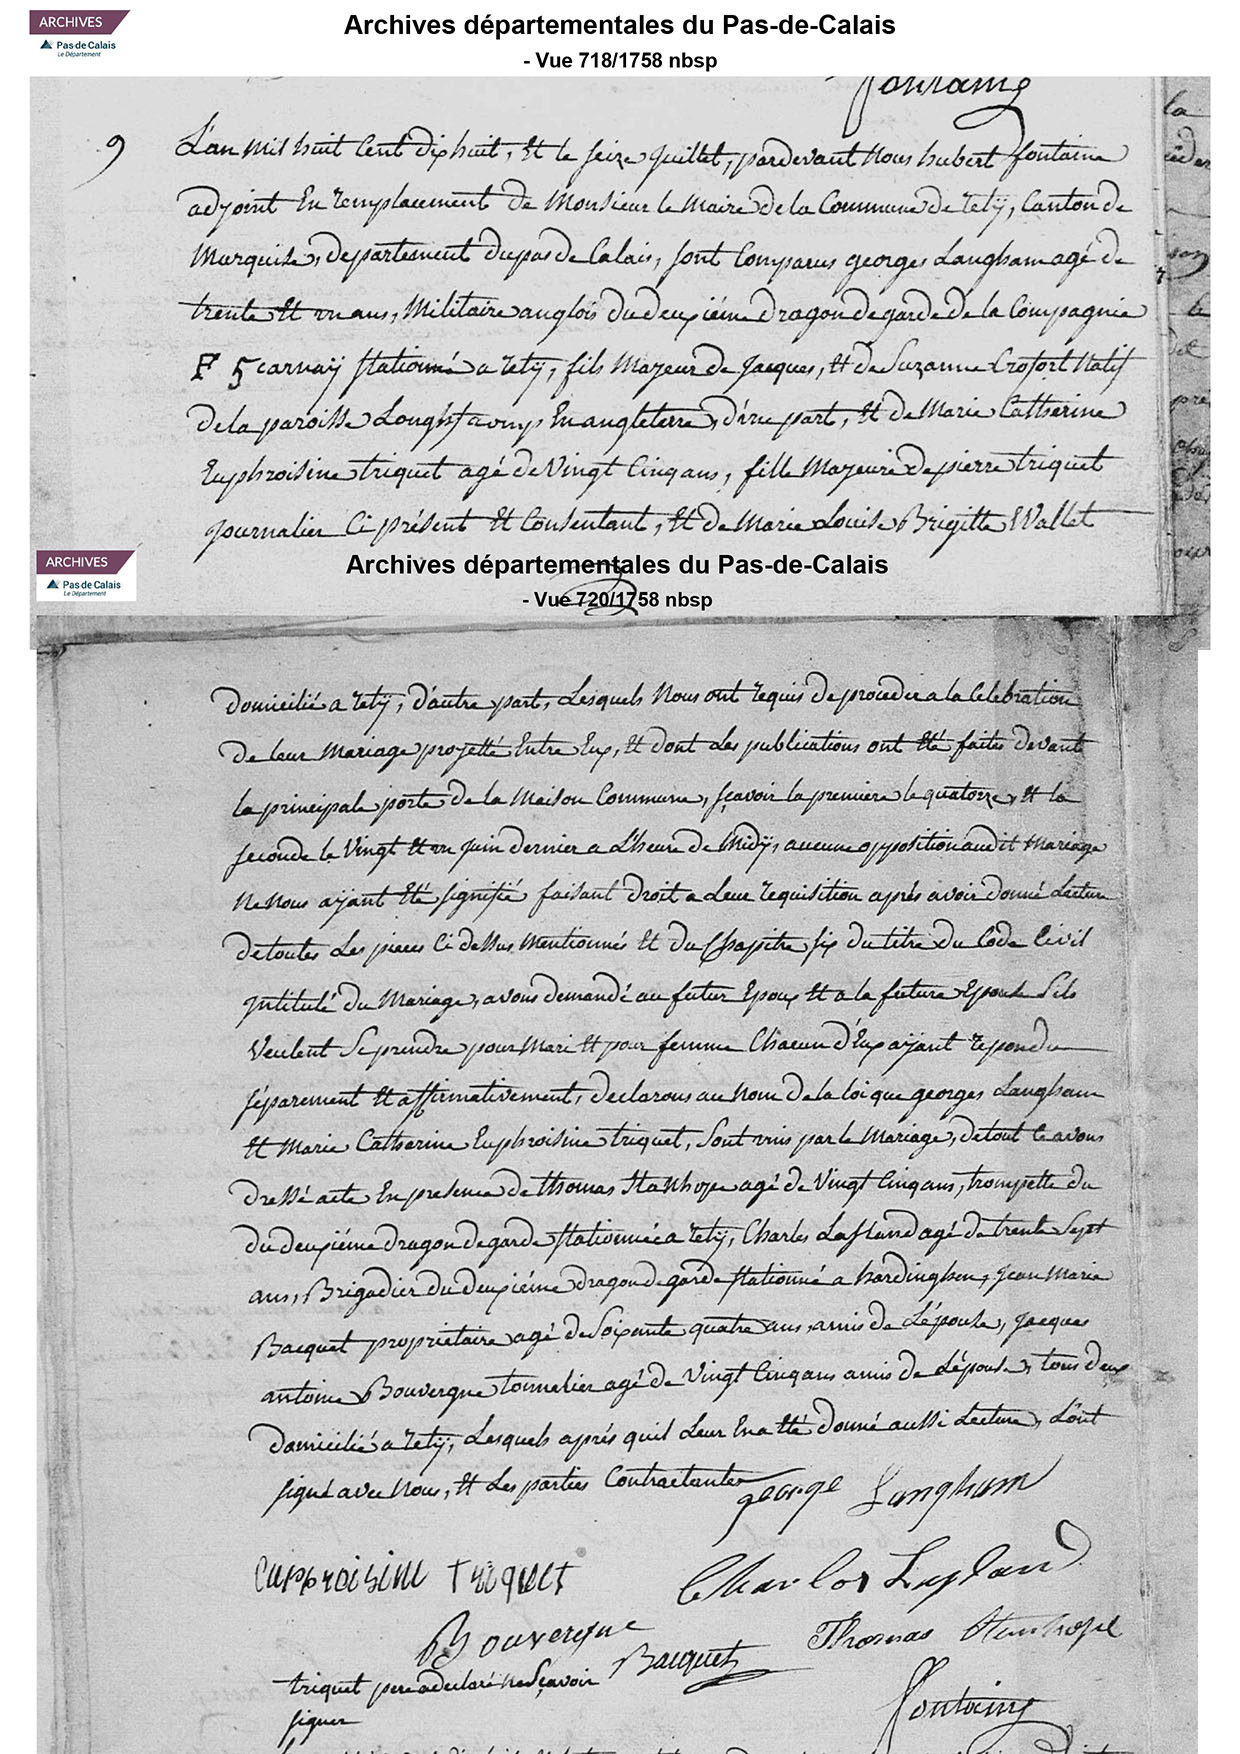 ARCHIVES
Pas de Calais
Le Département
Archives départementales du Pas-de-Calais
- Vue 718/1758 nbsp
fontaine
9
L'an mil huit Cent dix huit, Et le seize Juillet, pardevant Nous hubert fontaine
adjoint En remplacement de Monsieur le Maire de la Commune de retÿ, Canton de
Marquise, departement du pas de Calais, sont Comparus georges Langham agé de
trente Et un ans, Militaire anglois du deuxiéme dragon de garde de la Compagnie
F 5 stationné a retÿ, fils Majeur de Jacques, Et de Suzanne Crofort Natif
de la paroisse En angleterre, d'une part, Et de Marie Catherine
Euphroisine triquet agé de Vingt Cinq ans, fille Majeure de pierre triquet
journalier Ci présent Et Consentant, Et de Marie Louise Brigitte Wallet
ARCHIVES
Pas de Calais
Le Département
Archives départementales du Pas-de-Calais
- Vue 720/1758 nbsp
Domicilié a retÿ, d'autre part, Lesquels Nous ont requis de proceder a la Celebration
de leur Mariage projetté Entre Eux, Et dont Les publications ont Eté faites devant
la principale porte de la Maison Commune, sçavoir la premiere le quatorze, Et la
seconde le Vingt Et un Juin dernier a L'heure de Midÿ, aucune opposition audit Mariage
Ne Nous aÿant Eté signifié faisant droit a Leur requisition aprés avoir donné Lecture
de toutes Les pieces Ci dessus Mentionnés Et du Chapitre six du titre du Code Civil
Intitulé du Mariage, avons demandé au futur Epoux Et a la future Epouse S'ils
Veulent Se prendre pour Mari Et pour femme Chacun d'Eux aÿant repondu
séparement Et affirmativement, declarons au Nom de la loi que georges Langham
Et Marie Catherine Euphroisine triquet, Sont unis par le Mariage, de tout ce avons
dressé acte En presence de thomas Stanhope agé de Vingt Cinq ans, trompette du
du deuxiéme dragon de garde stationné a retÿ, Charles Lafland agé de trente Sept
ans, Brigadier du deuxiéme dragon de garde stationné a hardinghen, Jean Marie
Bacquet proprietaire agé de Soixante quatre ans, amis de L'épouse, Jacques
antoine Bouvergne tonnelier agé de Vingt Cinq ans amis de L'épouse, tous deux
domicilié a retÿ, Lesquels aprés qu'il Leur En a Eté donné aussi Lecture, L'ont
signé avec Nous, Et Les parties Contractantes
george Langham
Charles
Triquet
Bouvergne
Thomas Stanhope
Bacquet
triquet pere a declaré Ne Sçavoir
signer
fontaine